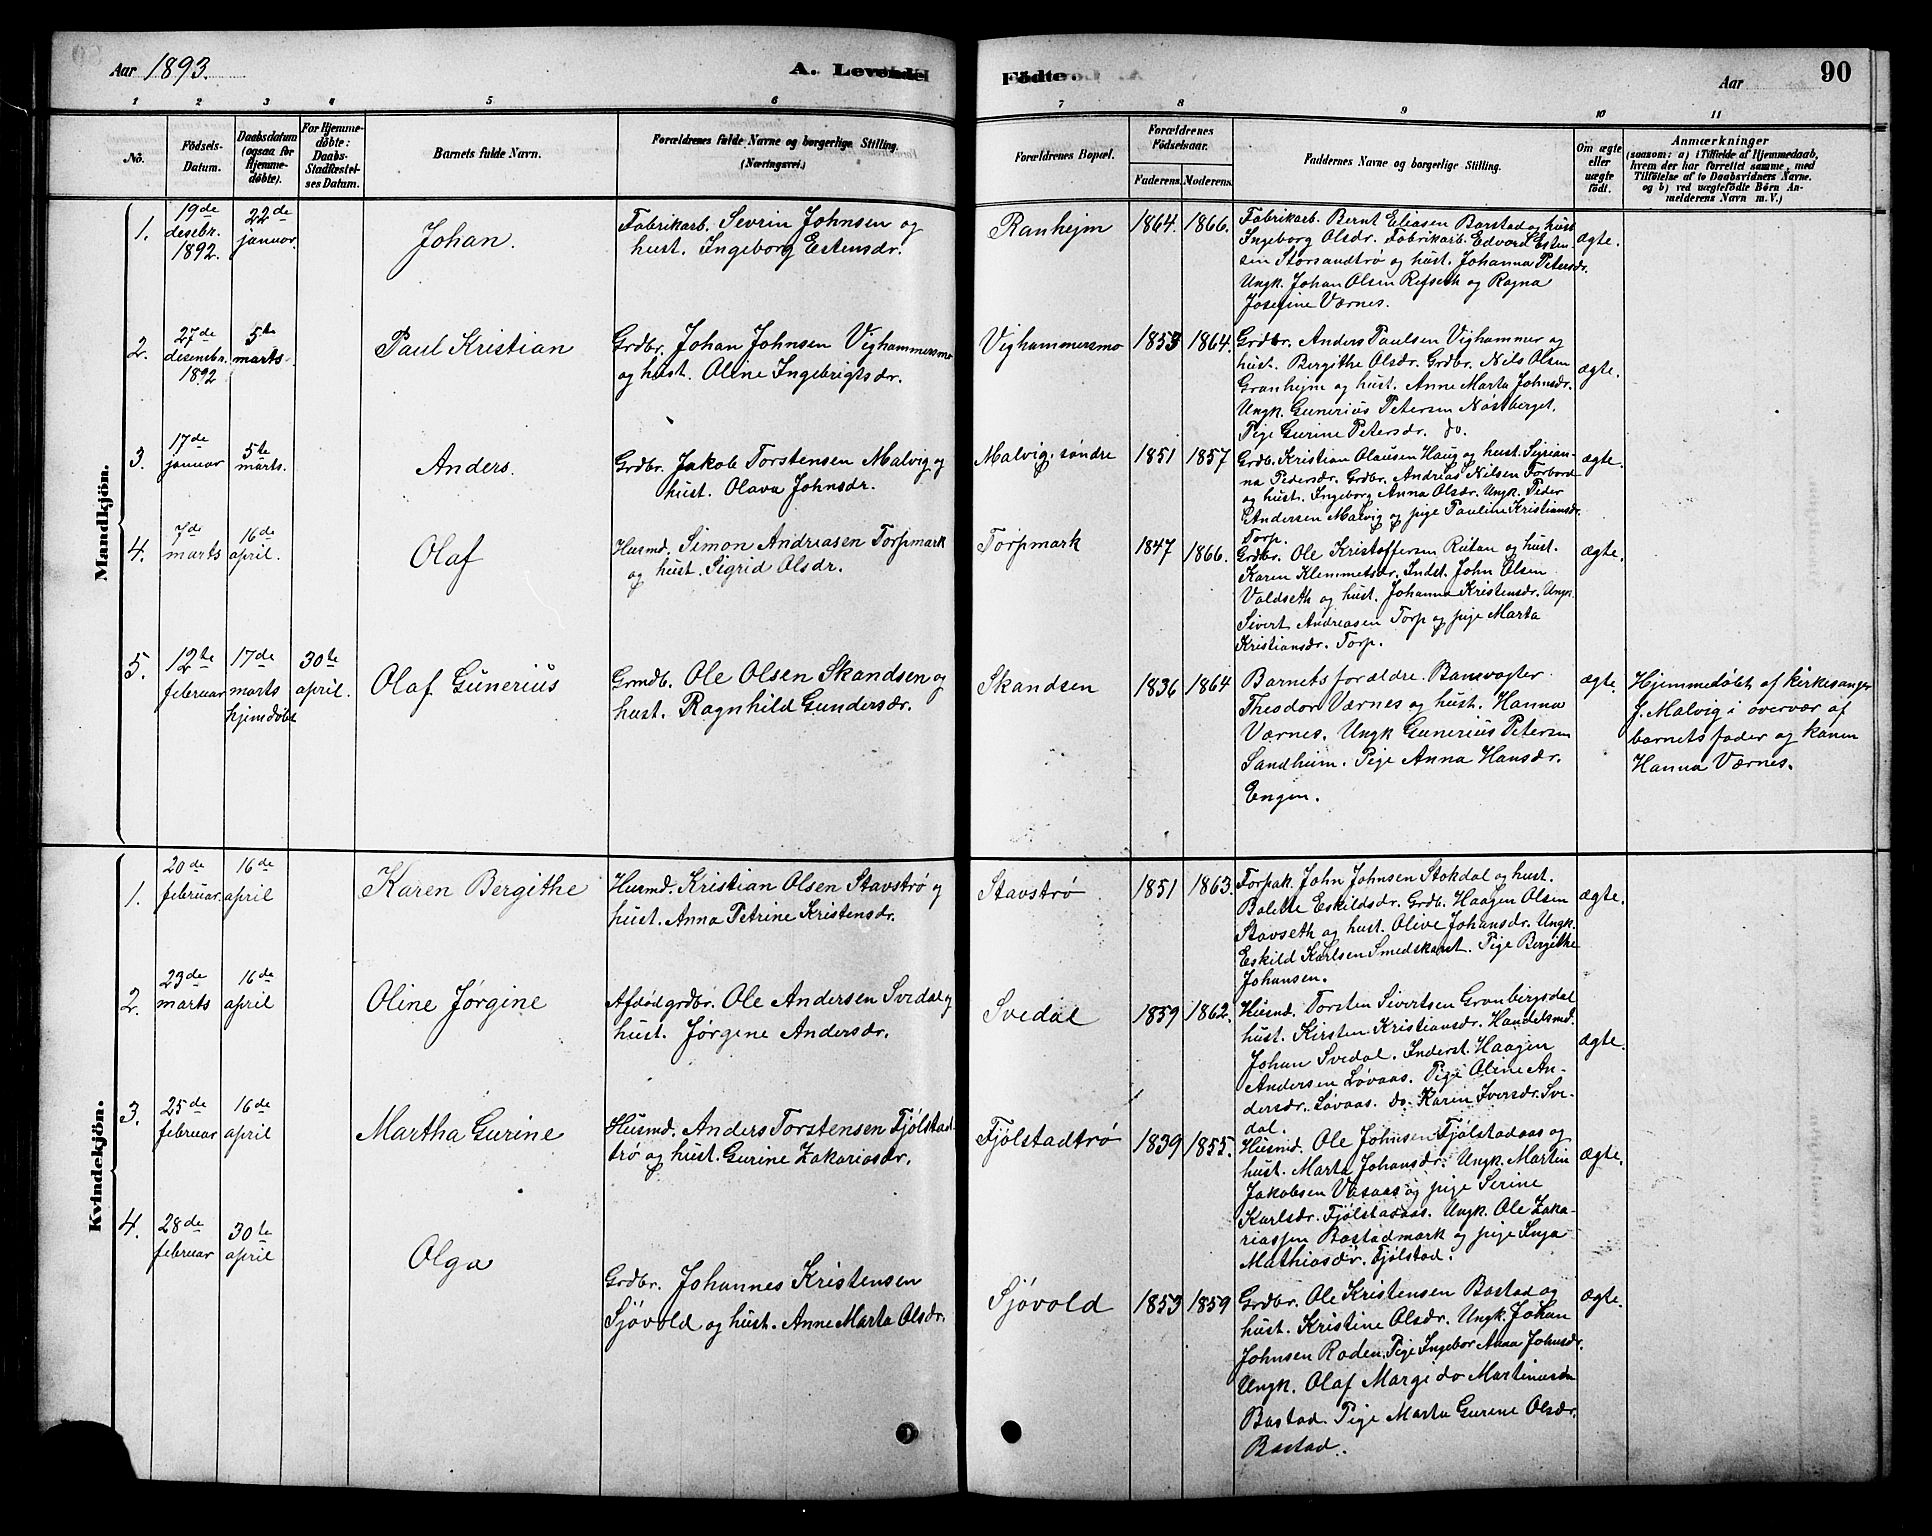 Aar 1893.
A. Levendel
Födte.
Aar
90
1 2 3 4 5 6 7 8 9 10 11
No.
Fødsels-
Datum.
Daabsdatum
(ogsaa for
Hjemme-
døbte).
For Hjemme-
døbte:
Daabs-
Stadfæstel-
ses Datum.
Barnets fulde Navn.
Forældrenes fulde Navne og borgerlige Stilling.
(Næringsvei.)
Forældrenes Bopæl.
Forældrenes
Fødselsaar.
Faderens. Moderens.
Faddernes Navne og borgerlige Stilling.
Om ægte
eller
uægte
født.
Anmærkninger
(saasom: a) i Tilfælde af Hjemmedaab,
hvem der har forrettet samme, med
Tilføielse af to Daabsvidners Navne,
og b) ved uægtefødte Børn An-
melderens Navn m.V.)
Mandkjön.
1.
19de
desebr.
1892.
22de
januar.
Johan.
Fabrikarb. Sevrin Johnsen og
hust. Ingeborg Estensdr.
Ranhejm
1864. 1866.
Fabrikarb. Bernt Eliasen Barstad og hust
Ingeborg Olsdr. Fabrikarb. Edvard Esten-
sen Storsandtrø og hust. Johanna Petersdr.
Ungk. Johan Olsen Refseth og Ragna
Josefine Værnes.
ægte.
2.
27de
desembr.
1892
5te
marts.
Paul Kristian
Grdbr. Johan Johnsen Vighammersmo
og hust. Oline Ingebrigtsdr.
Vighammersmo
1853 1864.
Grdbr. Anders Paulsen Vighammer og
hust. Bergithe Olsdr. Grdbr. Nils Olsen
Granhejm og hust. Anne Marta Johnsdr.
Ungk. Gunerius Petersen Nøstberget.
Pige Gurine Petersdr. do.
ægte.
3.
17de
januar
5te
marts.
Anders.
Grdbr. Jakob Torstensen Malvig og
hust. Olava Johnsdr.
Malvig, søndre
1851 1857
Grdb. Kristian Olausen Haug og hust. Sirian-
na Pedersdr. Grdbr. Andreas Nilsen Forbord
og hust. Ingeborg Anna Olsdr. Ungk. Peder
Andersen Malvig og pige Pauline Kristiansdr.
Torp.
ægte.
4.
7de
marts
16de
april.
Olaf
Husmd. Simon Andreasen Torpmark
og hust. Sigrid Olsdr.
Torpmark
1847 1866.
Grdbr. Ole Kristoffersen Rutan og hust.
Karen Klemmetsdr. Indst. John Olsen
Valdseth og hust. Johanna Kristensdr. Ungk.
Sivert Andreasen Torp og pige Marta
Kristiansdr. Torp.
ægte.
5.
12te
februar
17de
marts
hjemdøbt
30te
april.
Olaf Gunerius
Grndb. Ole Olsen Skandsen og
hust. Ragnhild Gundersdr.
Skandsen
1836 1864
Barnets forældre. Banevogter
Theodor Værnes og hust. Hanna
Værnes. Ungk Gunerius Petersen
Sandheim. Pige Anna Hansdr.
Engen.
ægte.
Hjemmedøbt af kirkesanger
J. Malvig i overvær af
barnets fader og konen
Hanna Værnes.
Kvindekjön.
1.
20de
februar.
16de
april
Karen Bergithe
Husmd. Kristian Olsen Stavstrø og
hust. Anna Petrine Kristensdr.
Stavstrø
1851 1863.
Forpak. John Johnsen Stokdal og hust.
Balette Eskildsdr. Grdb. Haagen Olsen
Stavseth og hust. Olive Johansdr. Ungk.
Eskild Karlsen Smedskaret. Pige Bergithe
Johansen.
ægte.
2.
23de
marts
16de
april
Oline Jørgine
Afdød grdbr. Ole Andersen Svedal og
hust. Jørgine Andersdr.
Svedal
1859 1862.
Husmd. Torsten Sivertsen Grønbergsdal
hust. Kirsten Kristiansdr. Handelsmd.
Johan Svedal. Inderst. Haagen
Andersen Løvaas. Pige Oline An-
dersdr. Løvaas. do. Karen Iversdr. Sve-
dal.
ægte.
3.
25de
februar
16de
april
Martha Gurine
Husmd. Anders Torstensen Fjølstad-
trø og hust. Gurine Zakariasdr.
Fjølstadtrø
1839 1855.
Husmd. Ole Johnsen Fjølstadaas og
hust. Marta Johansdr. Ungk. Martin
Jakobsen Vasaas og pige Serine
Karlsdr. Fjølstadaas. Ungk. Ole Zaka-
riassen Bostadmark og pige Inga
Mathiasdr. Fjølstad.
ægte.
4.
28de
februar
30te
april
Olga
Grdbr. Johannes Kristensen
Sjøvold og hust. Anne Marta Olsdr.
Sjøvold
1853 1859
Grdbr. Ole Kristensen Bostad og
hust. Kristine Olsdr. Ungk. Johan
Johnsen Roden. Pige Ingebor Anna Johnsdr.
Ungk. Olaf Margido Martinusdn
Bostad. Pige Marta Gurine Olsdr.
Bostad.
ægte.